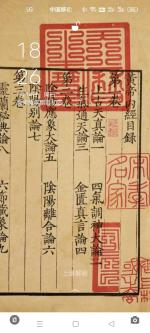 5G
18
6
黃帝內經目録
第一卷
上古天真論一 四氣調神大論二
生氣通天論三 金匱真言論四
第二卷
陰陽應象大論五 陰陽離合論六
陰陽別論七
第三卷
靈蘭秘典論八 六節藏象論九
上滑解锁